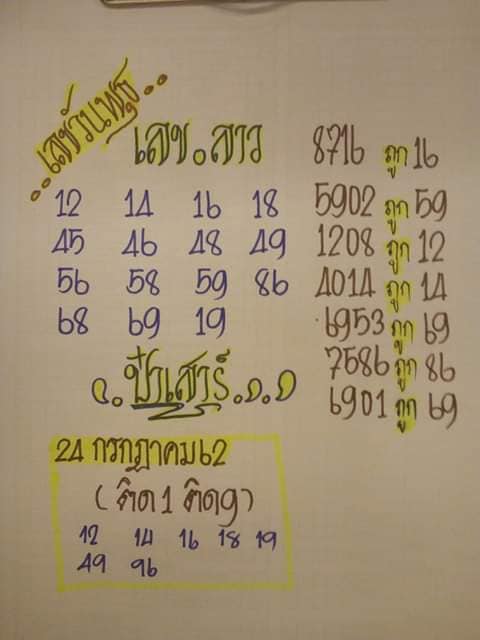 ..เลขวันพุธ..
เลข.ลาว
12 14 16 18
45 46 48 49
56 58 59 86
68 69 19
ป๋าเสาร์
8716 ถูก 16
5902 ถูก 59
1208 ถูก 12
4014 ถูก 14
6953 ถูก 69
7586 ถูก 86
6901 ถูก 69
24 กรกฎาคม 62
(ติด 1 ติด 9)
12 14 16 18 19
49 96